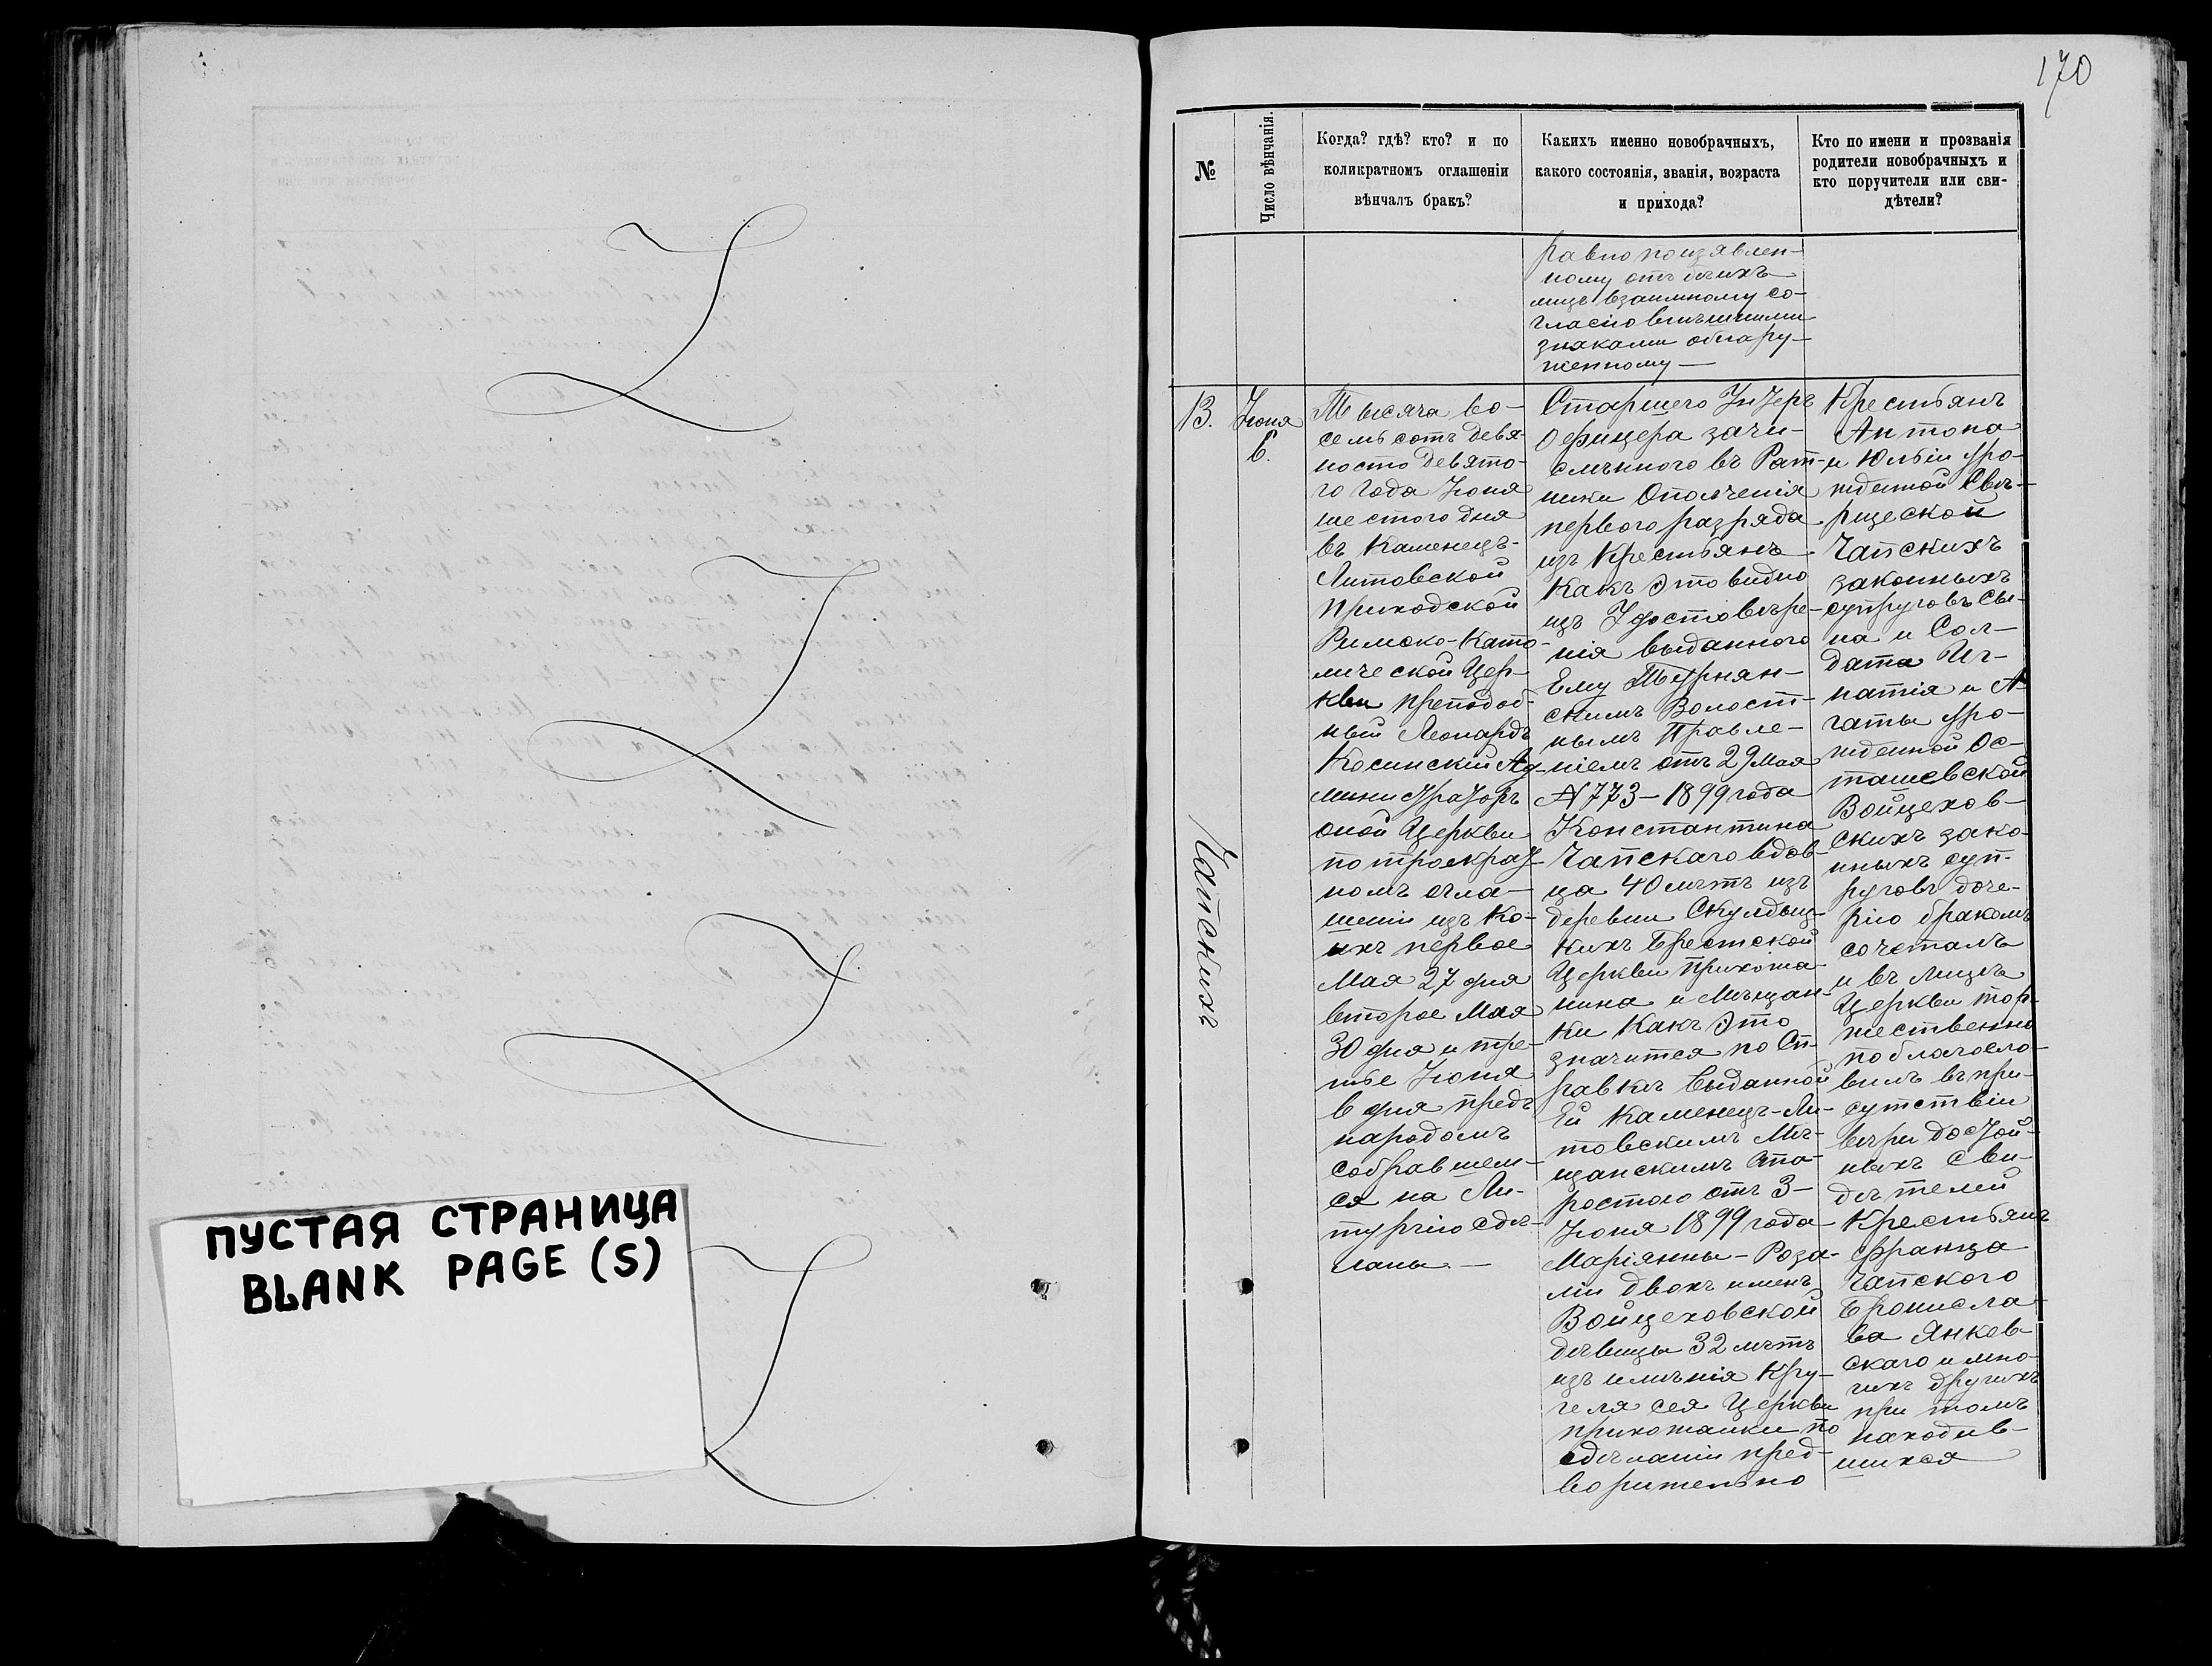 ПУСТАЯ СТРАНИЦА
BLANK PAGE (S)
170
№
Число вѣнчанія.
Когда? гдѣ? кто? и по
коликратномъ оглашеніи
вѣнчалъ бракъ?
Какихъ именно новобрачныхъ,
какого состоянія, званія, возраста
и прихода?
Кто по имени и прозванія
родители новобрачныхъ и
кто поручители или сви-
дѣтели?
равно по изявлен-
ному отъ обѣихъ
лицъ взаимному со-
гласію внѣшними
знаками обнару-
женному —
13.
Іюня
6.
Чапскихъ
Тысяча во-
семьсотъ девя-
носто девято-
го года Іюня
шестого дня
въ Каменецъ-
Литовской
приходской
Римско-Като-
лической Цер-
кви преподоб-
ный Леонардъ
Косинскій Ад-
министраторъ
оной Церкви
по троекрат-
номъ огла-
шеніи изъ ко-
ихъ первое
Мая 27 дня
второе Мая
30 дня и тре-
тье Іюня
6 дня предъ
народомъ
собравшем-
ся на Ли-
тургію сдѣ-
ланы. —
Старшего Унтеръ
Офицера зачи-
сленного въ Рат-
ники Ополченія
первого разряда
изъ Крестьянъ
Какъ это видно
изъ Удостовѣре-
нія выданного
Ему Турнян-
скимъ Волост-
нымъ Правле-
ніемъ отъ 29 Мая
N 773 - 1899 года
Константина
Чапскаго вдов-
ца 40 лѣтъ изъ
деревни
кихъ Брестской
Церкви Прихожа-
нина и Мѣщан-
ки Какъ это
значится по Сп-
равкѣ Выданной
Ей Каменецъ-Ли-
товскимъ Мѣ-
щанскимъ Ста-
ростою отъ 3 -
Іюня 1899 года
Маріянны - Роза-
ліи двохъ именъ
Войцеховской
дѣвицы 32 лѣтъ
изъ имѣнія Кру-
геля сея Церкви
прихожанки по
сдѣланіи пред-
ворительно
Крестьянъ
Антона
и Юліи уро-
жденной Свѣ-
рщеской
Чапскихъ
законныхъ
супруговъ Сы-
на и Сол-
дата Иг-
натія и А-
гаты уро-
жденной Ос-
ташевской
Войцехов-
скихъ зако-
нныхъ суп-
руговъ доче-
рію бракомъ
сочеталъ
и въ лицѣ
Церкви тор-
жественно
поблагосло-
вилъ въ при-
сутствіи
вѣри достой-
ныхъ сви-
дѣтелей
Крестьянъ
Франца
Чапского
Бронисла-
ва Янков-
скаго и мно-
гихъ другихъ
при томъ
находив-
шихся